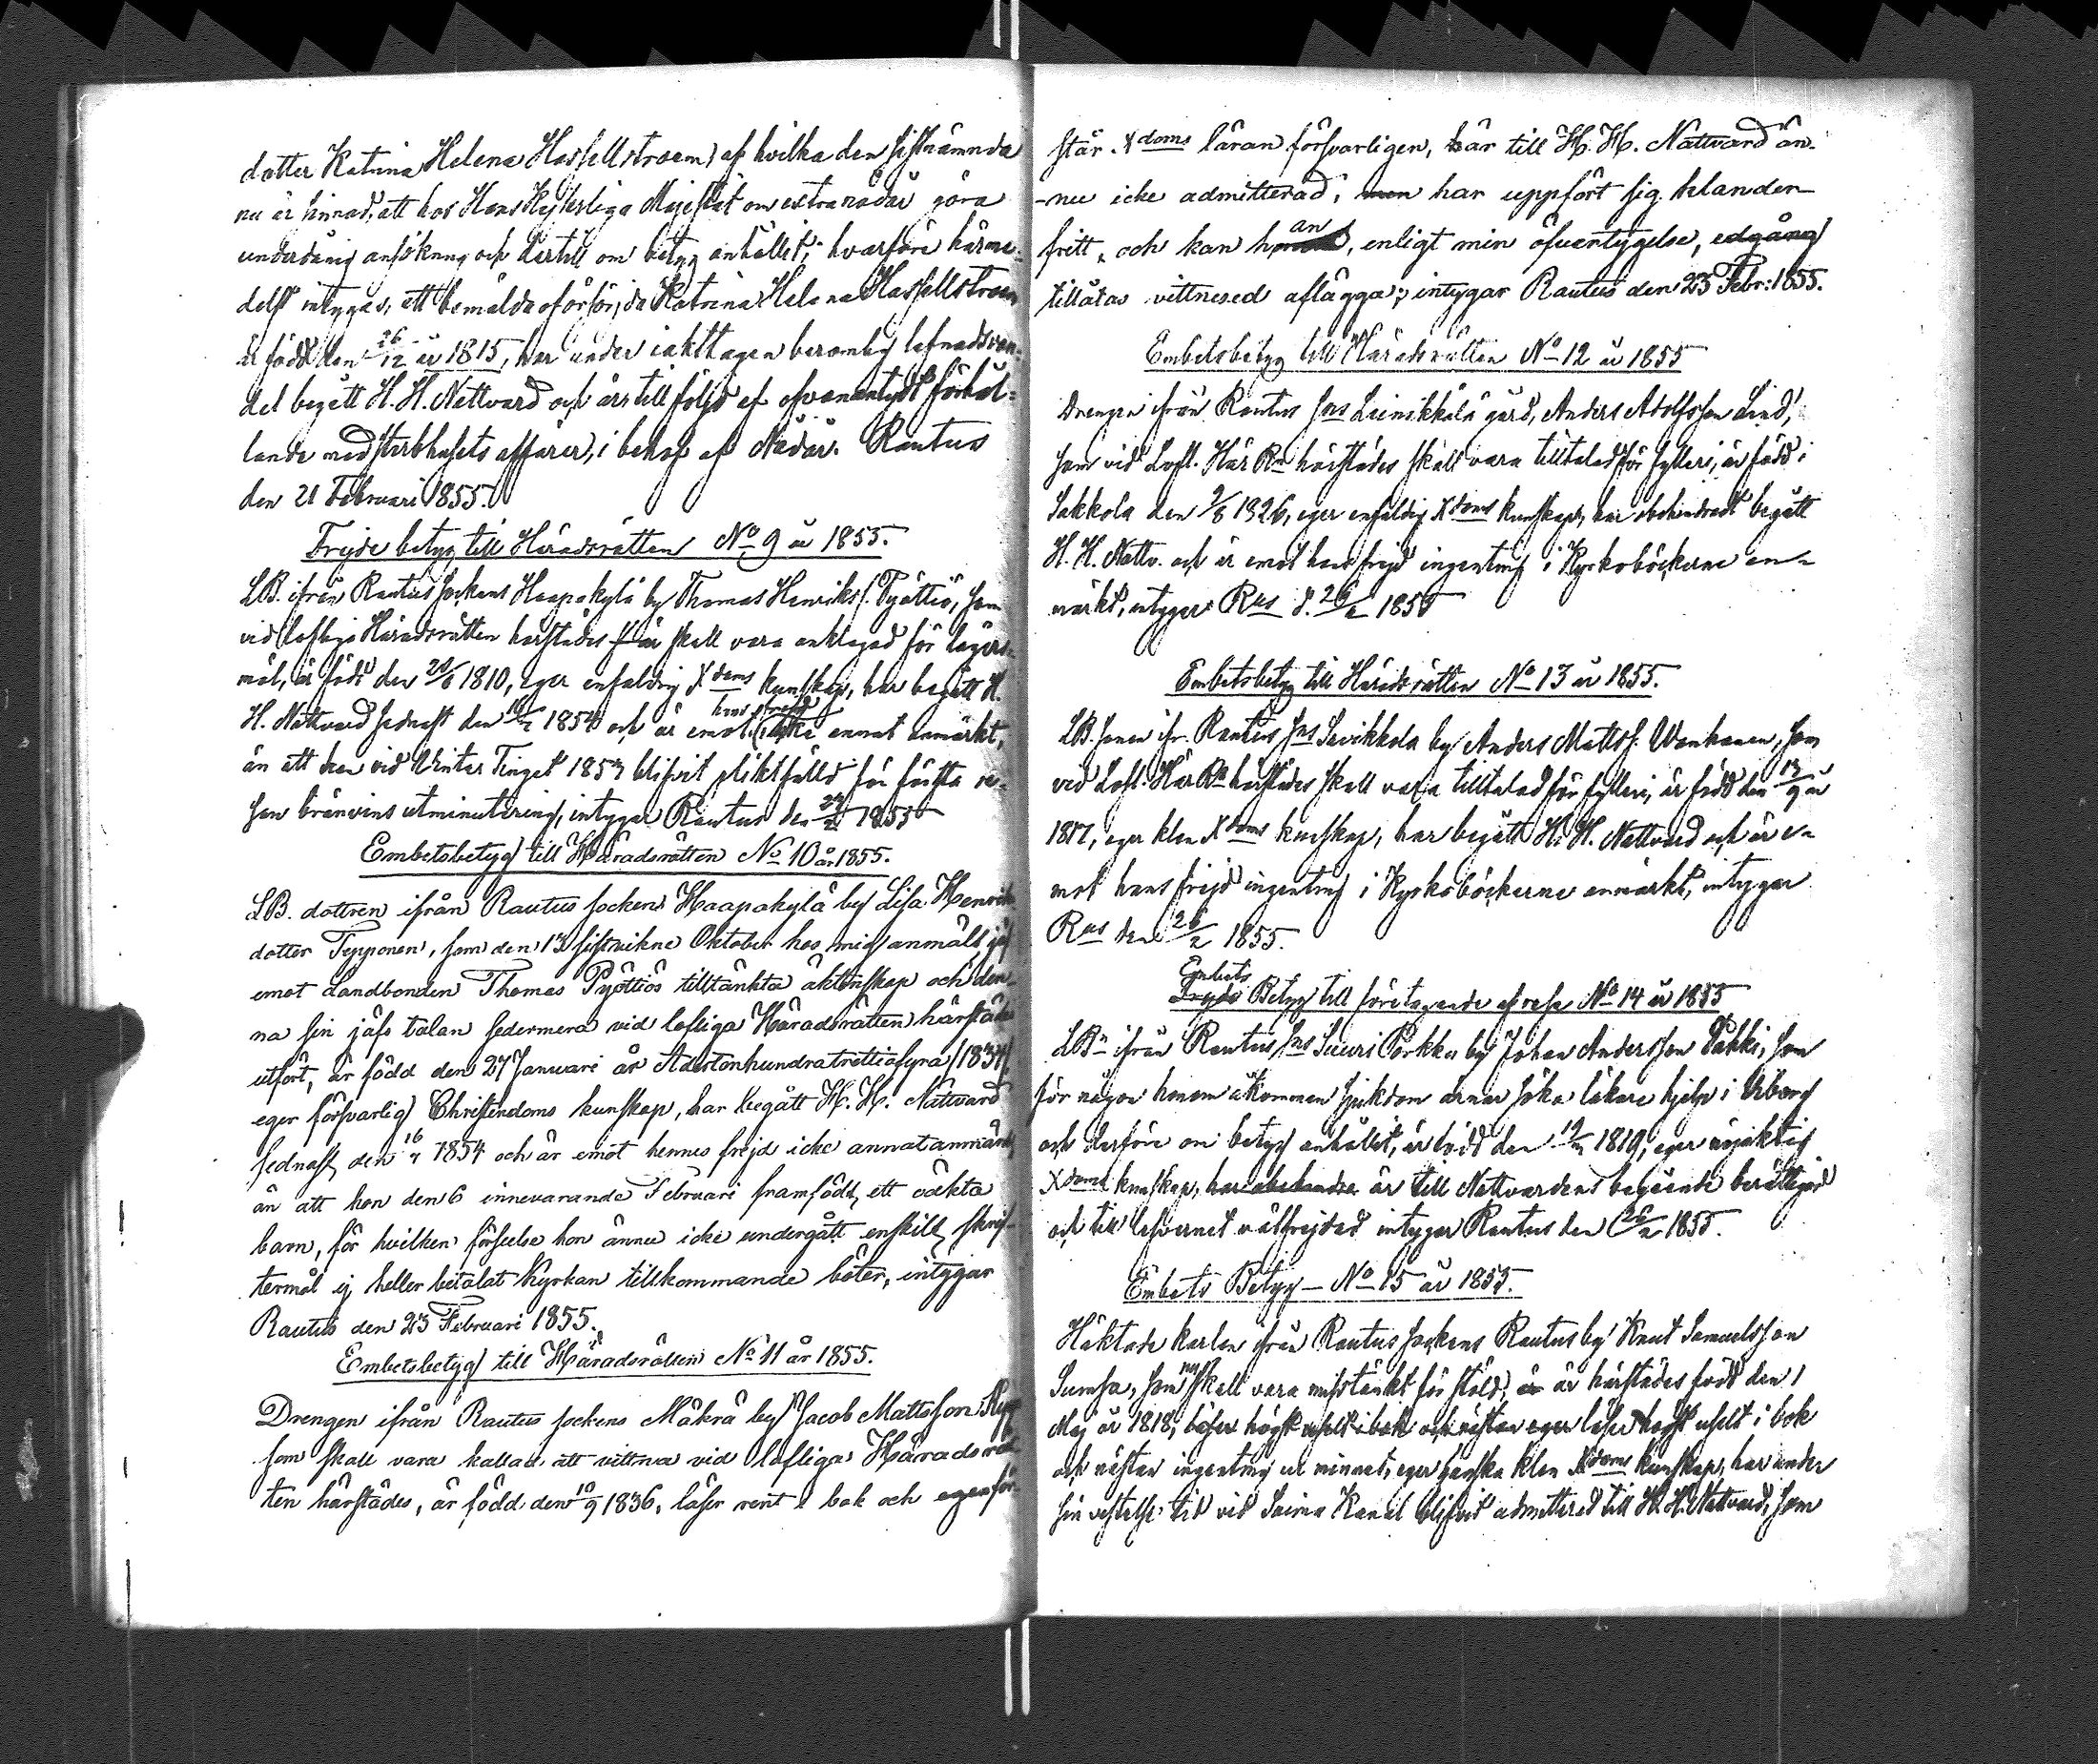 dotter Katrina Helena Hassellstroem) af hvilka den sistnämnda
nu är sinnad, att hos Hans Kejserliga Majestät om extra nådår göra
underdånig ansökning och dertill om betyg anhållit; hvarföre härme-
delst intygas, att bemälda oförsörjda Katrina Helena Hassellstroem
är född den 26/12 år 1815, har under iakttagen beromlig lefnadsvan-
del begått H. H. Nattvard och är till följd af ofvanantydt förhål-
lande med sterbhusets affärer, i behof af Nådår. Rautus
den 21 Februari 1855.
Frejde betyg till Häradsrätten No 9 år 1855.
LB. ifrån Rautus sockens Haapakylä by Thomas Henriks. Pyöttiö, som
vid lofliga Häradsrätten härstädes skall vara anklagad för lägers-
mål, är född den 20/6 1810, eger enfaldig Xdoms kunskap, har begått H.
H. Nattvard sednast den 1854 och är emot hans frejd icke annat anmärkt,
än att han vid Vinter Tinget 1853 blifvit pliktfälld för första re-
san bränvins utminutering, intygar Rautus den 1855
Embetsbetyg till Häradsrätten No 10 år 1855.
LB. dottren ifrån Rautus sockens Haapakylä by Lisa Henriks
dotter Tepponen, som den 13 sistvikne Oktober hos mig anmält jäf
emot Landbonden Thomas Pyöttiös tilltänkta äktenskap och den-
na sin jäfs talan sedermera vid lofliga Häradsrätten härstädes
utfört, är född den 27 Januari år Adertonhundratrettiofyra (1834)
eger försvarlig Christendoms kunskap, har begått H. H. Nattvard
sednast den 1854 och är emot hennes frejd icke annat anmärkt,
än att hon den 6 innevarande Februari framfödt ett oäkta
barn, för hvilken förseelse hon ännu icke undergått enskilt skrif-
termål ej heller betalat Kyrkan tillkommande böter, intygar
Rautus den 23 Februari 1855.
Embetsbetyg till Häradsrätten No 11 år 1855.
Drengen ifrån Rautus sockens Mäkrä by Jacob Mattsson
som skall vara kallad att vittna vid lofliga Häradsrät-
ten härstädes, är född den 10/9 1836, läser rent i bok och egen för-
står Xdoms läran försvarligen, är till H. H. Nattvard än-
-nu icke admitterad; men har uppfört sig klander-
fritt, och kan han, enligt min öfvertygelse, edgång
tillåtas vittnesed aflägga; intygar Rautus den 23 Febr: 1855.
Embetsbetyg till Häradsrätten No 12 år 1855
Drengen ifrån Rautus sns Leinikkälä gård, Anders Adolfsson Lind,
som vid Lofl. Här Rn härstädes skall vara tilltalad för fylleri, är född i
Sakkola den 9/8 1826, eger enfaldig Xdoms kunskap, har obehindradt begått
H. H. Nattv. och är emot hans frejd ingenting i Kyrkoböckerne an-
märkt, intygar Rus d. 26/2 1855
Embetsbetyg till Häradsrätten No 13 år 1855.
LB. sonen ifr. Rautus sns Savikkola by Anders Matts. Wanhanen, som
vid Lofl. Här Rn härstädes skall vara tilltalad för fylleri, är född den 13/9 år
1817, eger klen Xdoms kunskap, har begått H. H. Nattvard och är e-
mot hans frejd ingenting i Kyrkoböckerne anmärkt, intygar
Rus den 26/2 1855.
Embets
Frejde Betyg till företagande af resa No 14 år 1855
LBn ifrån Rautus sns Suuri Porkku by Johan Andersson Pakki, som
för någon honom åkommen sjukdom ärnar söka läkare hjelp i Wiborg
och derföre om betyg anhållit, är född den 1819, eger
Xdoms kunskap, har obehindra är till Nattvardens begående berättigad
och till lefvernet välfrejdad intygar Rautus den 26/2 1855.
Embets Betyg – No 15 år 1855.
Häktade karlen ifrån Rautus sockens Rautus by Knut Samuelsson
Sumsa, som nu skall vara misstänkt för stöld, är är härstädes född den 1
Maj år 1818, läser högst uselt i bok och nästan eger läser högst uselt i bok
och nästan ingenting ur minnet, eger ganska klen Xdoms kunskap, har under
sin vistelse tid vid Saima Kanal blifvit admitterad till H. H. Nattvard, som